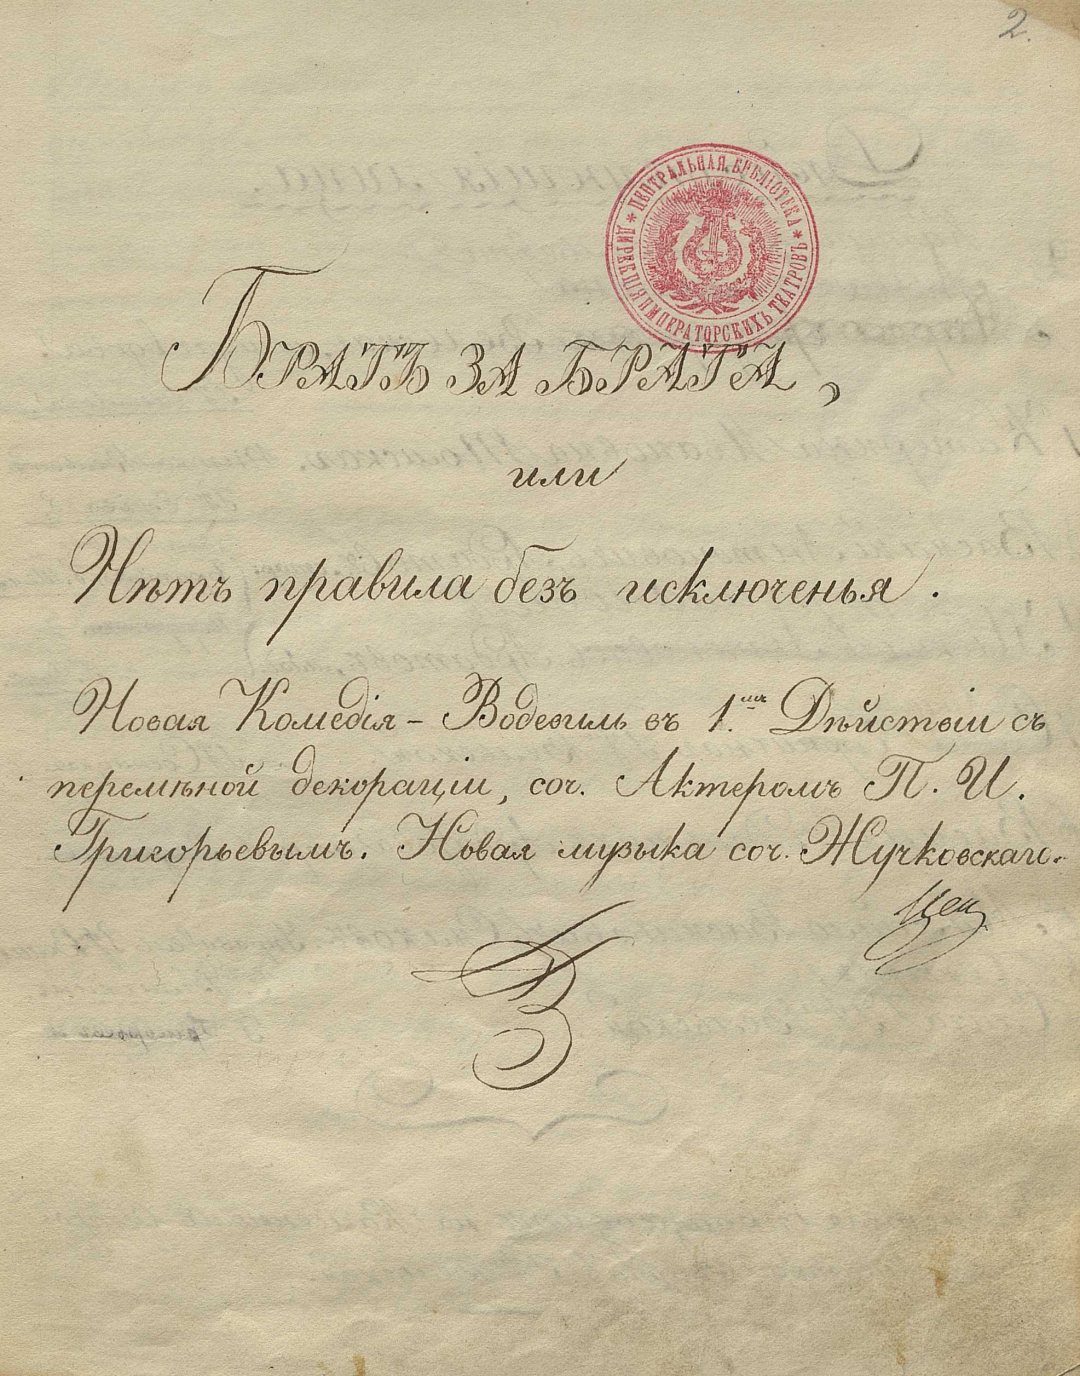 2.
ЦЕНТРАЛЬНАЯ БИБЛІОТЕКА * ДИРЕКЦІЯ ИМПЕРАТОРСКИХЪ ТЕАТРОВЪ *
БРАТЪ ЗА БРАТА,
или
Нѣтъ правила безъ исключенья.
Новая Комедія-Водевиль въ 1.мъ Дѣйствіи съ
перемѣной декораціи, соч. Актеромъ П. И.
Григорьевымъ. Новая музыка соч. Жучковскаго.